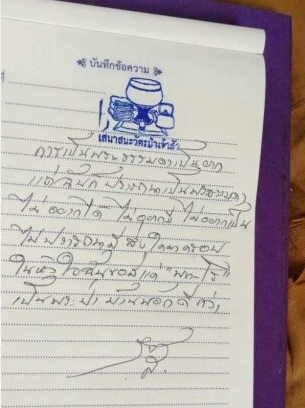 บันทึกข้อความ
ที่
เสนาสนะวัดป่าเจ้าสัว
การเป็นพระธรรมดาเป็นยาก
แต่ฉันก็ปรารถนาเป็นพระธรรมดา
ไม่อยากได้ ไม่อยากมี ไม่อยากเป็น
ไม่ปรารถนาสิ่งใดมาครอบ
ในหัวใจฉันขอแค่
เป็นพระป่า